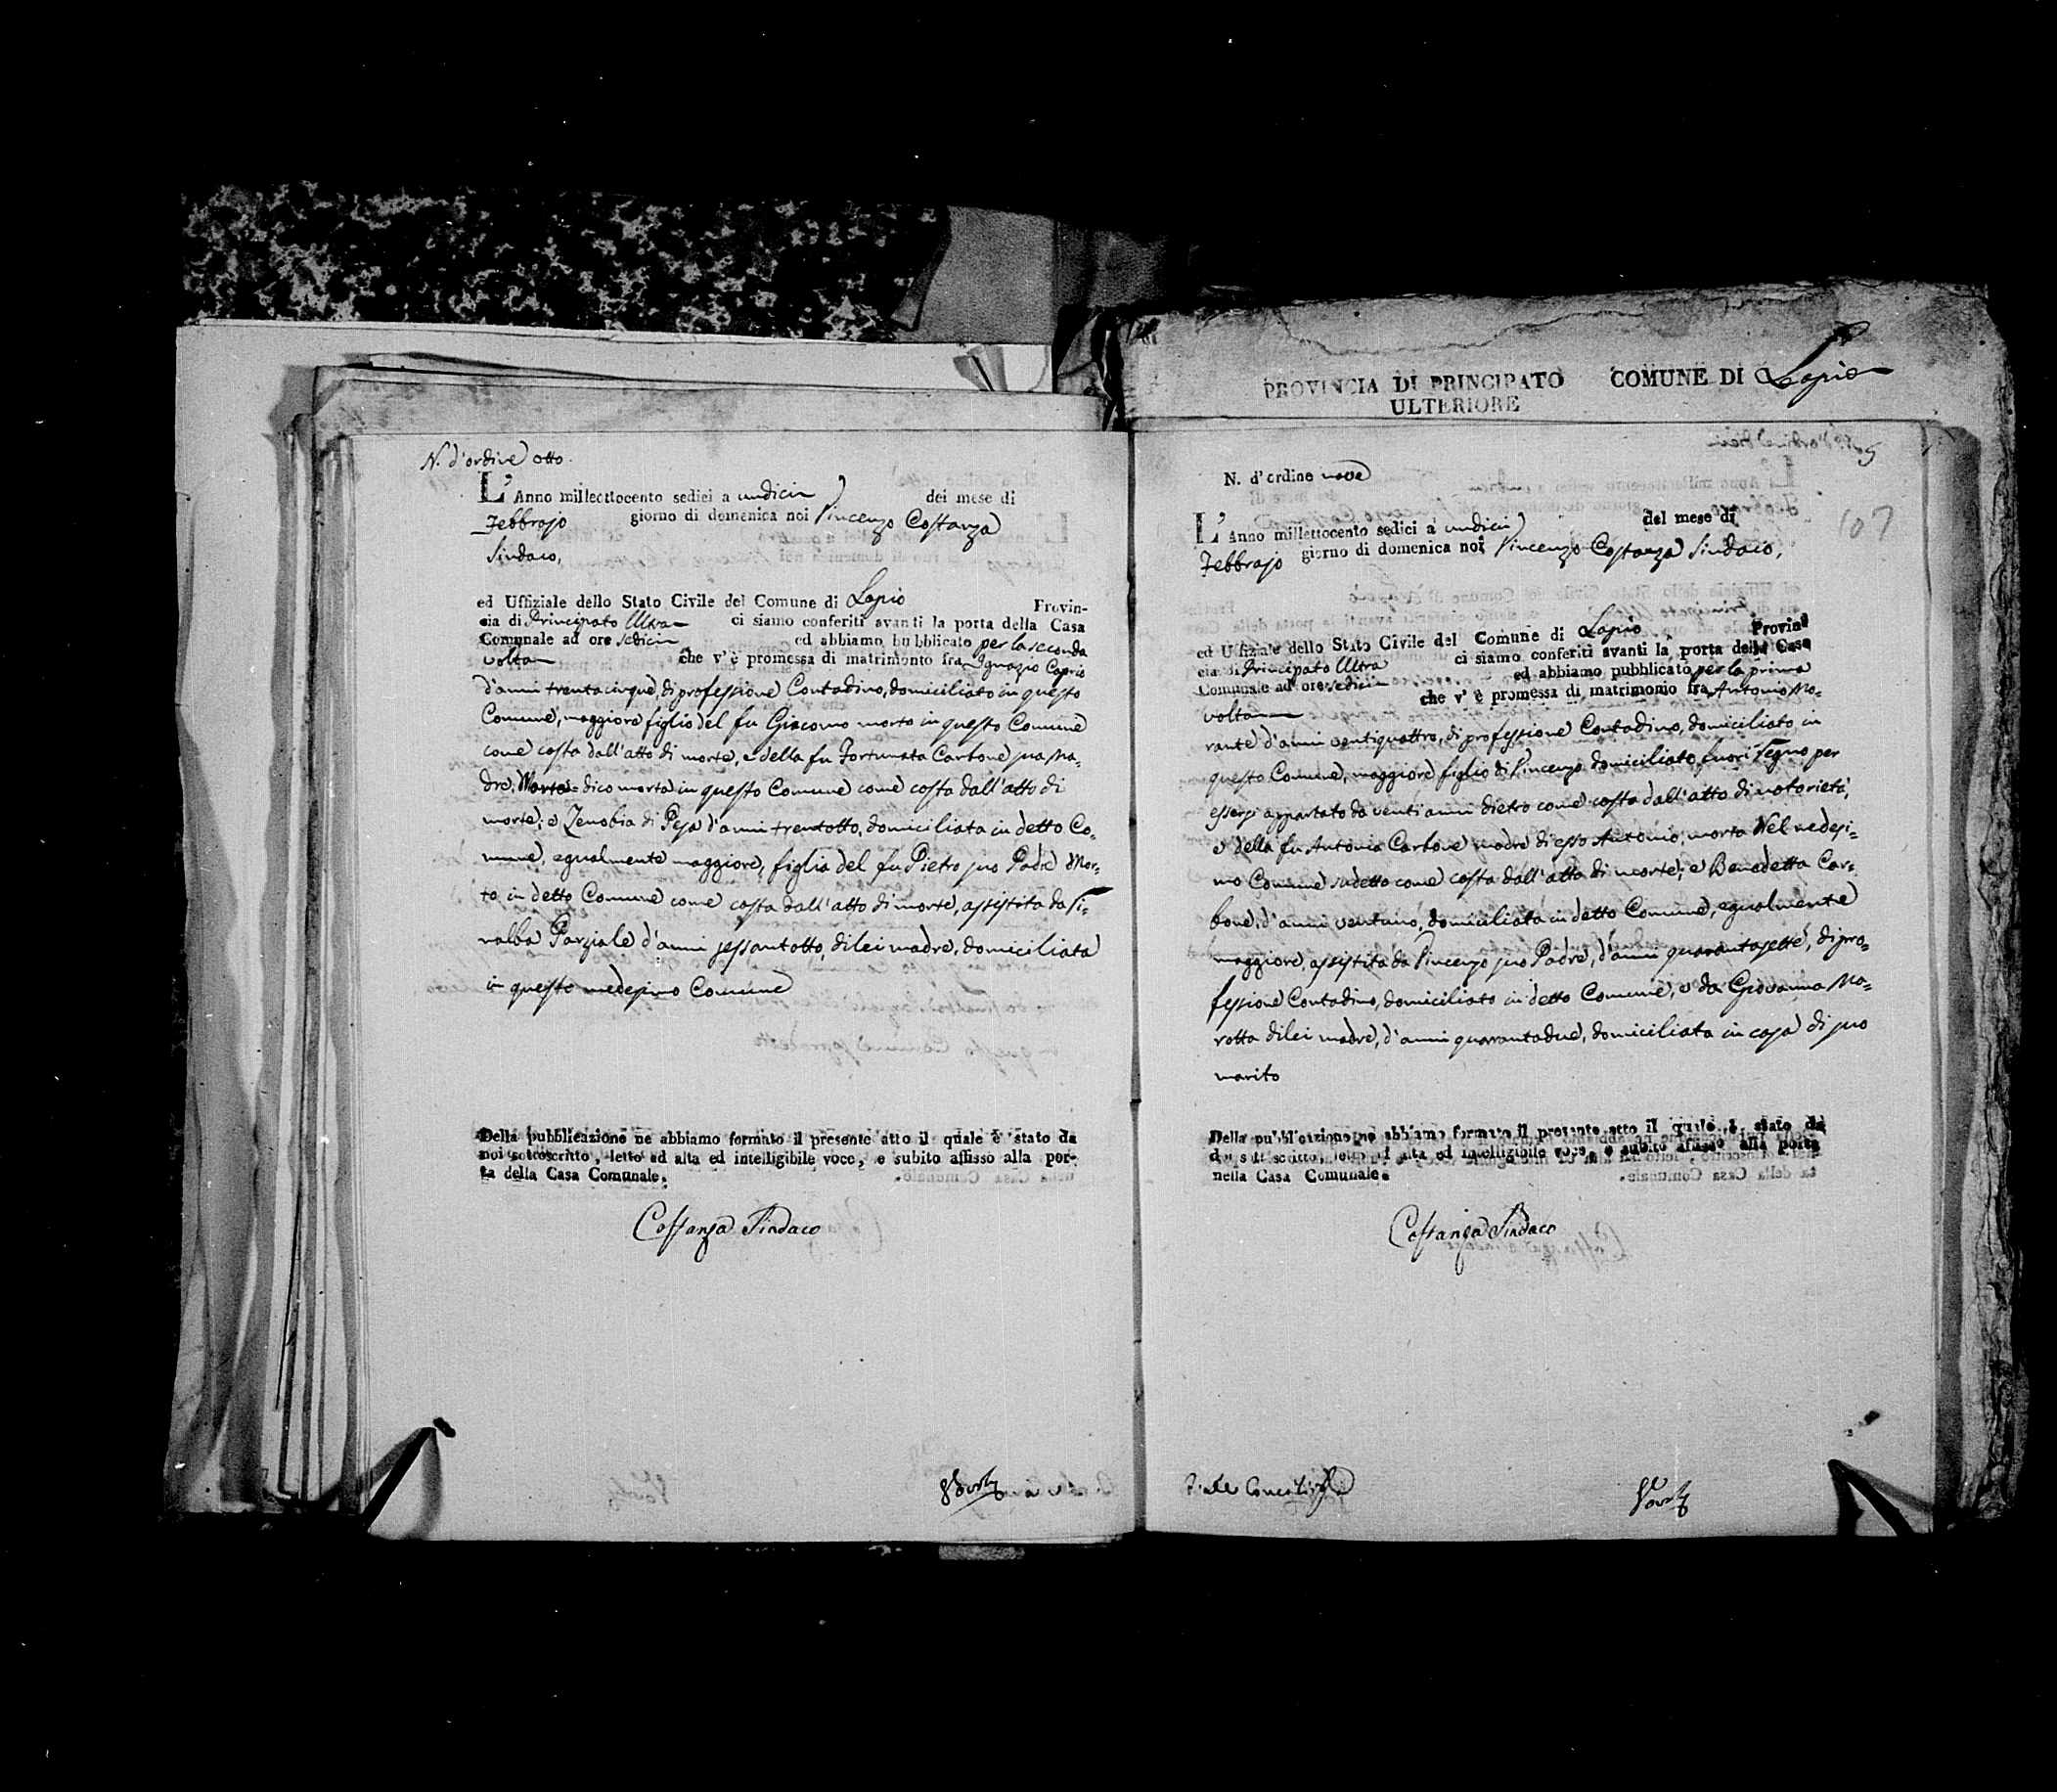 N. d'ordine otto.
L'Anno millecttocento sedici a undici del mese di
Febbrajo giorno di domenica noi Vincenzo Costanza
Sindaco,
ed Uffiziale dello Stato Civile del Comune di Lapio Provin-
cia di Principato Ultra ci siamo conferiti avanti la porta della Casa
Comunale ad ore sedici ed abbiamo bubblicato per la seconda
volta che v'è promessa di matrimonto fra Ignazio Caprio
d'anni trentacinque, di professione Contadino, domiciliato in questo
Comune, maggiore figlio del fu Giacomo morto in questo Comune
come costa dall'atto di morte, e della fu Fortunata Carbone sua Ma-
dre, Morta= dico morta in questo Comune come costa dall'atto di
morte; e Zenobia di Pesa d'anni trentotto, domiciliata in detto Co-
mune, egualmente maggiore, figlia del fu Pietro suo Padre Mor-
to in detto Comune come costa dall'atto di morte, assistita da
Parziale d'anni sessantotto, di lei madre, domiciliata
in questo medesimo Comune
Della pubblicazione ne abbiamo formato il presente atto il quale è stato da
noi sottoscritto, letto ad alta ed intelligibile voce, e subito affisso alla por-
ta della Casa Comunale.
Costanza Sindaco
PROVINCIA DI PRINCIPATO COMUNE DI Lapio
ULTERIORE
107
N. d'ordine nove
L'Anno millettocento sedici a undici del mese di
Febbrajo giorno di domenica noi Vincenzo Costanza Sindaco,
ed Uffiziale dello Stato Civile del Comune di Lapio Provin-
cia di Principato Ultra ci siamo conferiti avanti la porta della Casa
Comunale ad ore sedici ed abbiamo pubblicato per la prima
volta che v'è promessa di matrimonio fra Antonio Mo-
rante d'anni ventiquattro, di professione Contadino, domiciliato in
questo Comune, maggiore figlio di Vincenzo domiciliato fuori Regno per
essersi appartato da venti anni dietro come costa dall'atto di notorietà,
e della fu Antonia Carbone madre di esso Antonio, morta Nel medesi-
mo Comune sudetto come costa dall'atto di morte; e Benedetta Car-
bone, d'anni ventuno, domiciliata in detto Comune, egualmente
maggiore, assistita da Vincenzo suo Padre, d'anni quarantasette, di pro-
fessione Contadino, domiciliato in detto Comune, e da Giovanna Ma-
rotta di lei madre, d'anni quarantadue, domiciliata in casa di suo
marito
Della pubblicazione ne abbiamo formato il presente atto il quale è stato da
noi sottoscritto, letto ad alta ed intelligibile voce, e subito affisso alla porta
nella Casa Comunale.
Costanza Sindaco